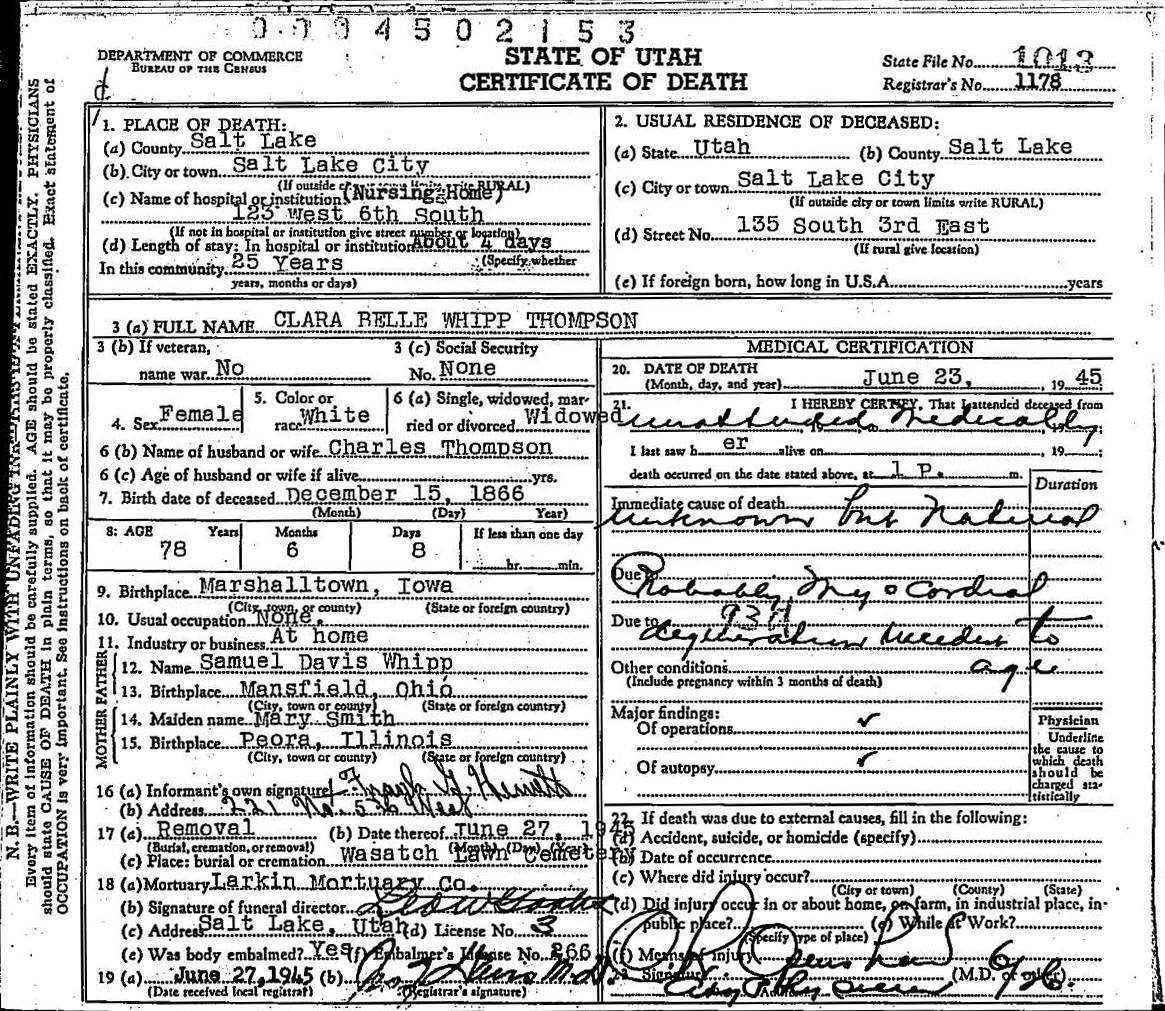 0004502153
DEPARTMENT OF COMMERCE
BUREAU OF THE CENSUS
STATE OF UTAH
CERTIFICATE OF DEATH
State File No. 1013
Registrar's No. 1178
N. B.—WRITE PLAINLY WITH UNFADING
Every item of information should be carefully supplied. AGE should be stated EXACTLY. PHYSICIANS
should state CAUSE OF DEATH in plain terms, so that it may be properly classified. Exact statement of
OCCUPATION is very important. See instructions on back of certificate.
1. PLACE OF DEATH:
(a) County Salt Lake
(b) City or town Salt Lake City
(If outside RURAL)
(c) Name of hospital or institution (Nursing Home)
123 West 6th South
(If not in hospital or institution give street number or location)
(d) Length of stay: In hospital or institution About 4 days
In this community 25 Years (Specify whether
years, months or days)
2. USUAL RESIDENCE OF DECEASED:
(a) State Utah (b) County Salt Lake
(c) City or town Salt Lake City
(If outside city or town limits write RURAL)
(d) Street No. 135 South 3rd East
(If rural give location)
(e) If foreign born, how long in U.S.A. years
3 (a) FULL NAME CLARA BELLE WHIPP THOMPSON
3 (b) If veteran, name war No
3 (c) Social Security No. None
4. Sex Female
5. Color or race White
6 (a) Single, widowed, married or divorced Widowed
6 (b) Name of husband or wife Charles Thompson
6 (c) Age of husband or wife if alive yrs.
7. Birth date of deceased December 15, 1866
(Month) (Day) Year)
8: AGE Years Months Days If less than one day
78 6 8 hr. min.
9. Birthplace Marshalltown, Iowa
(City, town, or county) (State or foreign country)
10. Usual occupation None.
11. Industry or business At home
FATHER
12. Name Samuel Davis Whipp
13. Birthplace Mansfield, Ohio
(City, town or county) (State or foreign country)
MOTHER
14. Maiden name Mary Smith
15. Birthplace Peora, Illinois
(City, town or county) (State or foreign country)
16 (a) Informant's own signature Frank
(b) Address 221 No. 5th West
17 (a) Removal (b) Date thereof June 27, 1945
(Burial, cremation, or removal) (Month) (Day) (Year)
(c) Place: burial or cremation Wasatch Lawn Cemetery
18 (a) Mortuary Larkin Mortuary Co.
(b) Signature of funeral director
(c) Address Salt Lake, Utah (d) License No. 3
(e) Was body embalmed? Yes (f) Embalmer's License No. 266
19 (a) June 27, 1945 (b) M.D.
(Date received local registrar) (Registrar's signature)
MEDICAL CERTIFICATION
20. DATE OF DEATH
(Month, day, and year) June 23, 19 45
21. I HEREBY CERTIFY, That I attended deceased from
unattended Medically
I last saw h er alive on , 19 ;
death occurred on the date stated above, at 1 P. m.
Duration
Immediate cause of death
Unknown but Natural
Due to
Probably Myocordial
Due to 93d
degeneration incident to
Other conditions age
(Include pregnancy within 3 months of death)
Major findings:
Of operations ✓
Of autopsy ✓
Physician
Underline
the cause to
which death
should be
charged sta-
tistically
22. If death was due to external causes, fill in the following:
(a) Accident, suicide, or homicide (specify)
(b) Date of occurrence
(c) Where did injury occur?
(City or town) (County) (State)
(d) Did injury occur in or about home, on farm, in industrial place, in-
public place? (e) While at Work?
(Specify type of place)
(f) Means of injury
23. Signature (M.D. or other)
Address